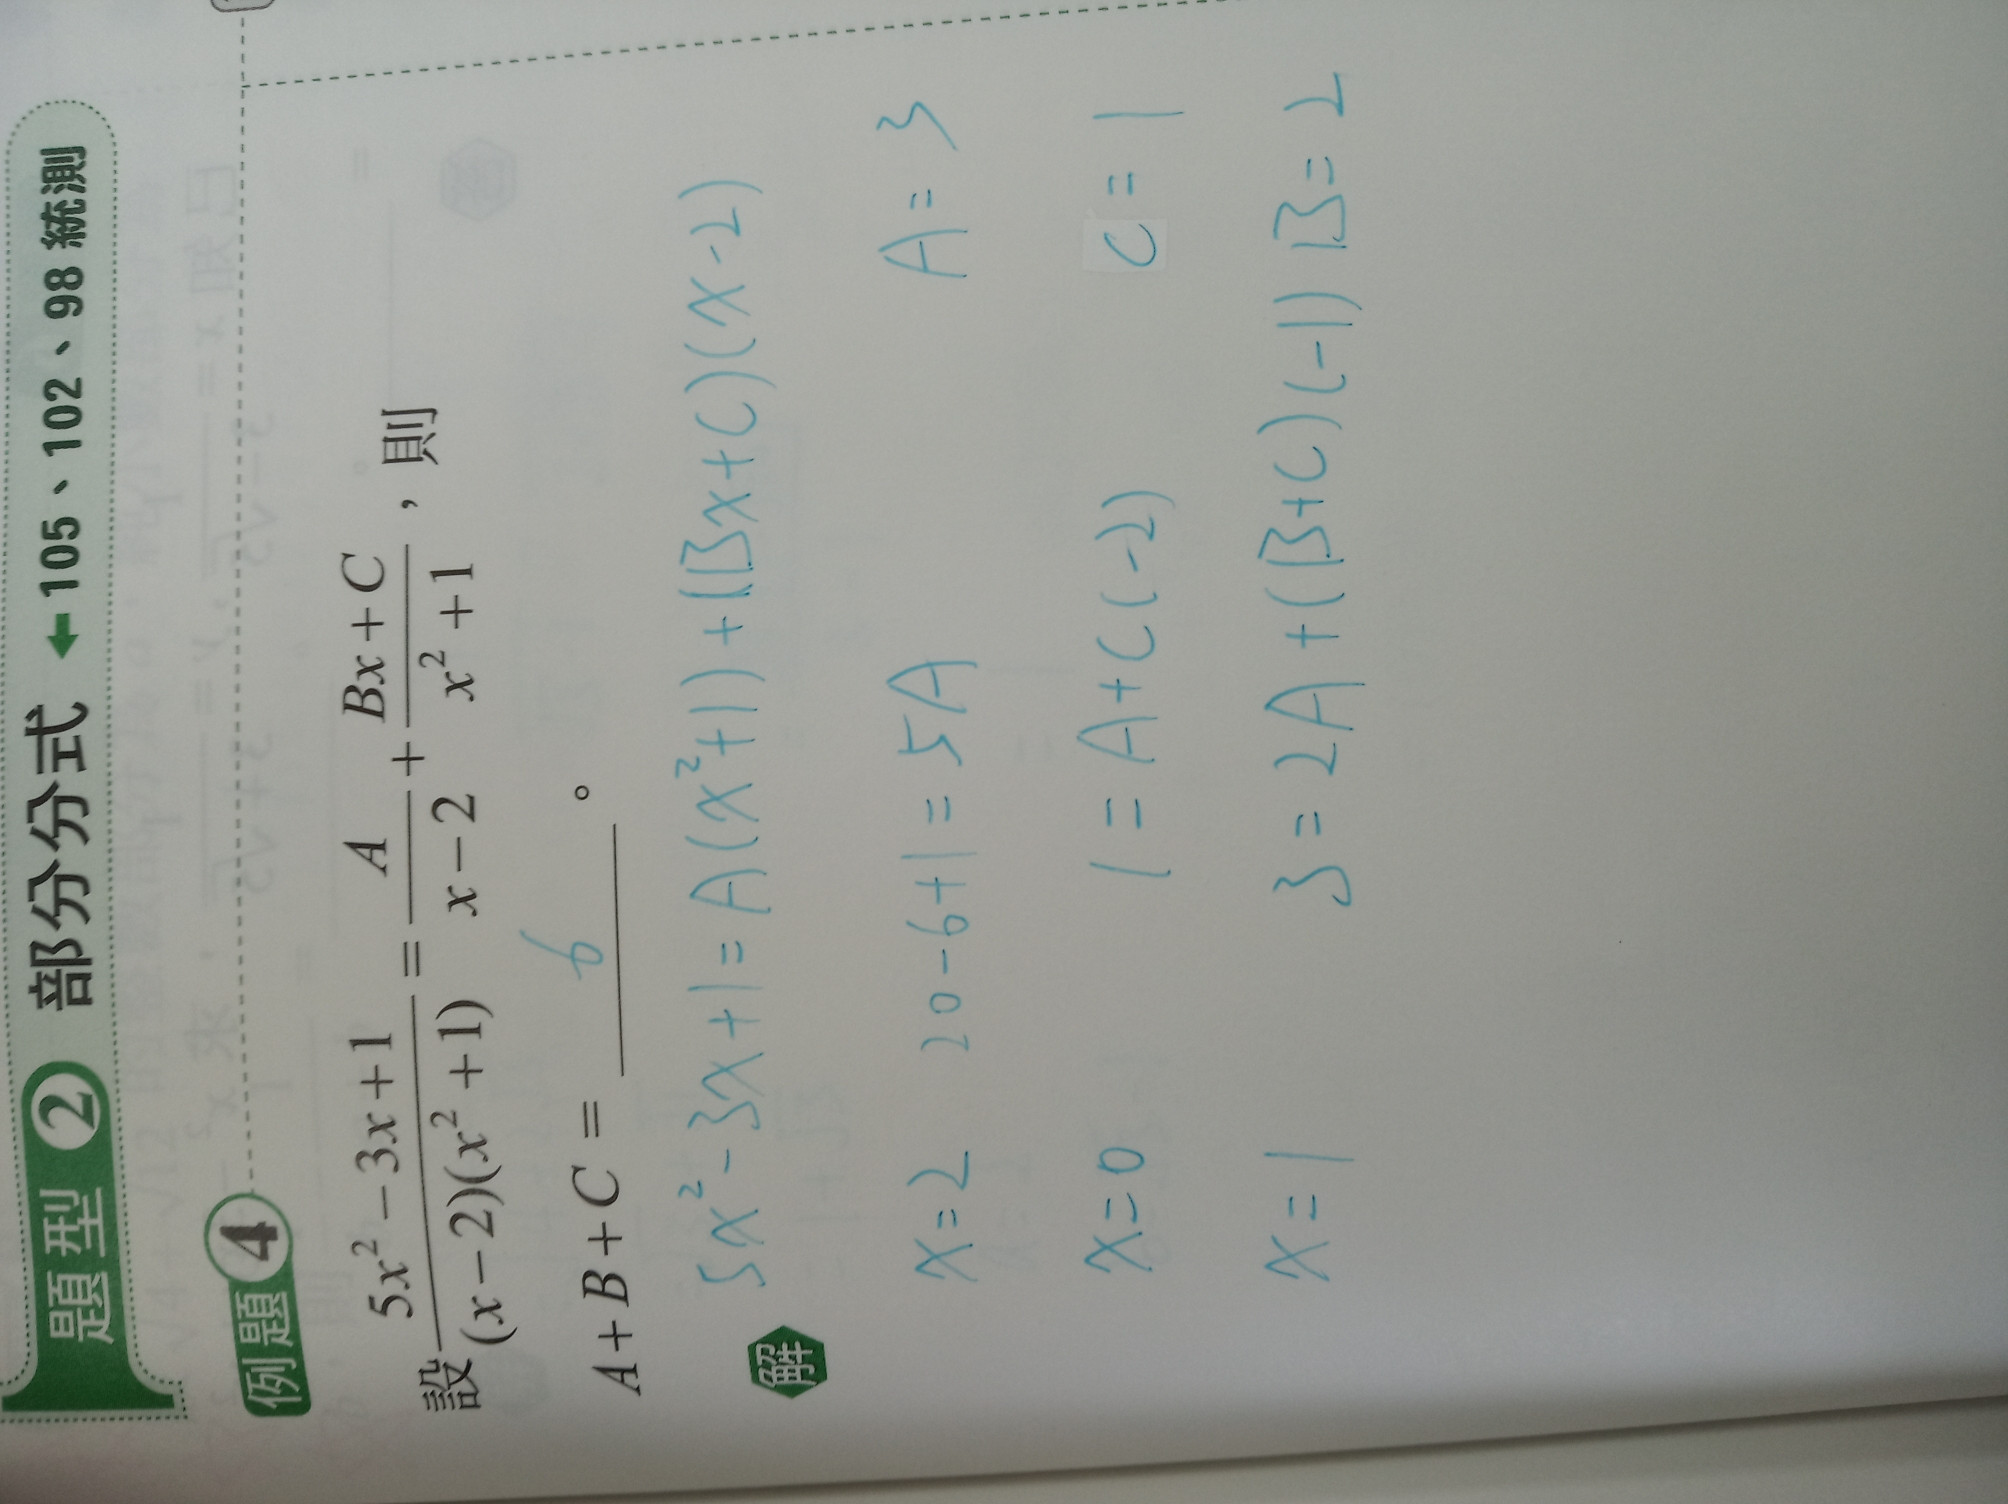 題型 2 部分分式 ←105、102、98 統測
例題 4
設 (5x²−3x+1)/((x−2)(x²+1)) = A/(x−2) + (Bx+C)/(x²+1)，則
A+B+C = 6 。
解 5x²-3x+1=A(x²+1)+(Bx+C)(x-2)
x=2 20-6+1=5A A=3
x=0 1=A+C(-2) C=1
x=1 3=2A+(B+C)(-1) B=2